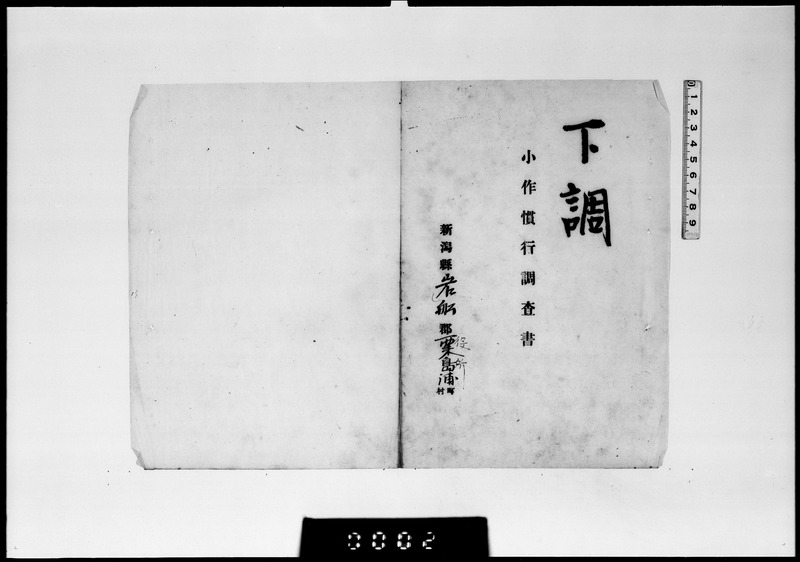 下調
小作慣行調査書
新潟縣岩船郡粟島浦町村
役所
0 1 2 3 4 5 6 7 8 9
0002